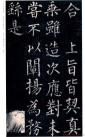 合上旨皆契真
乘雖造次應對未
嘗不以闡揚為務
繇是